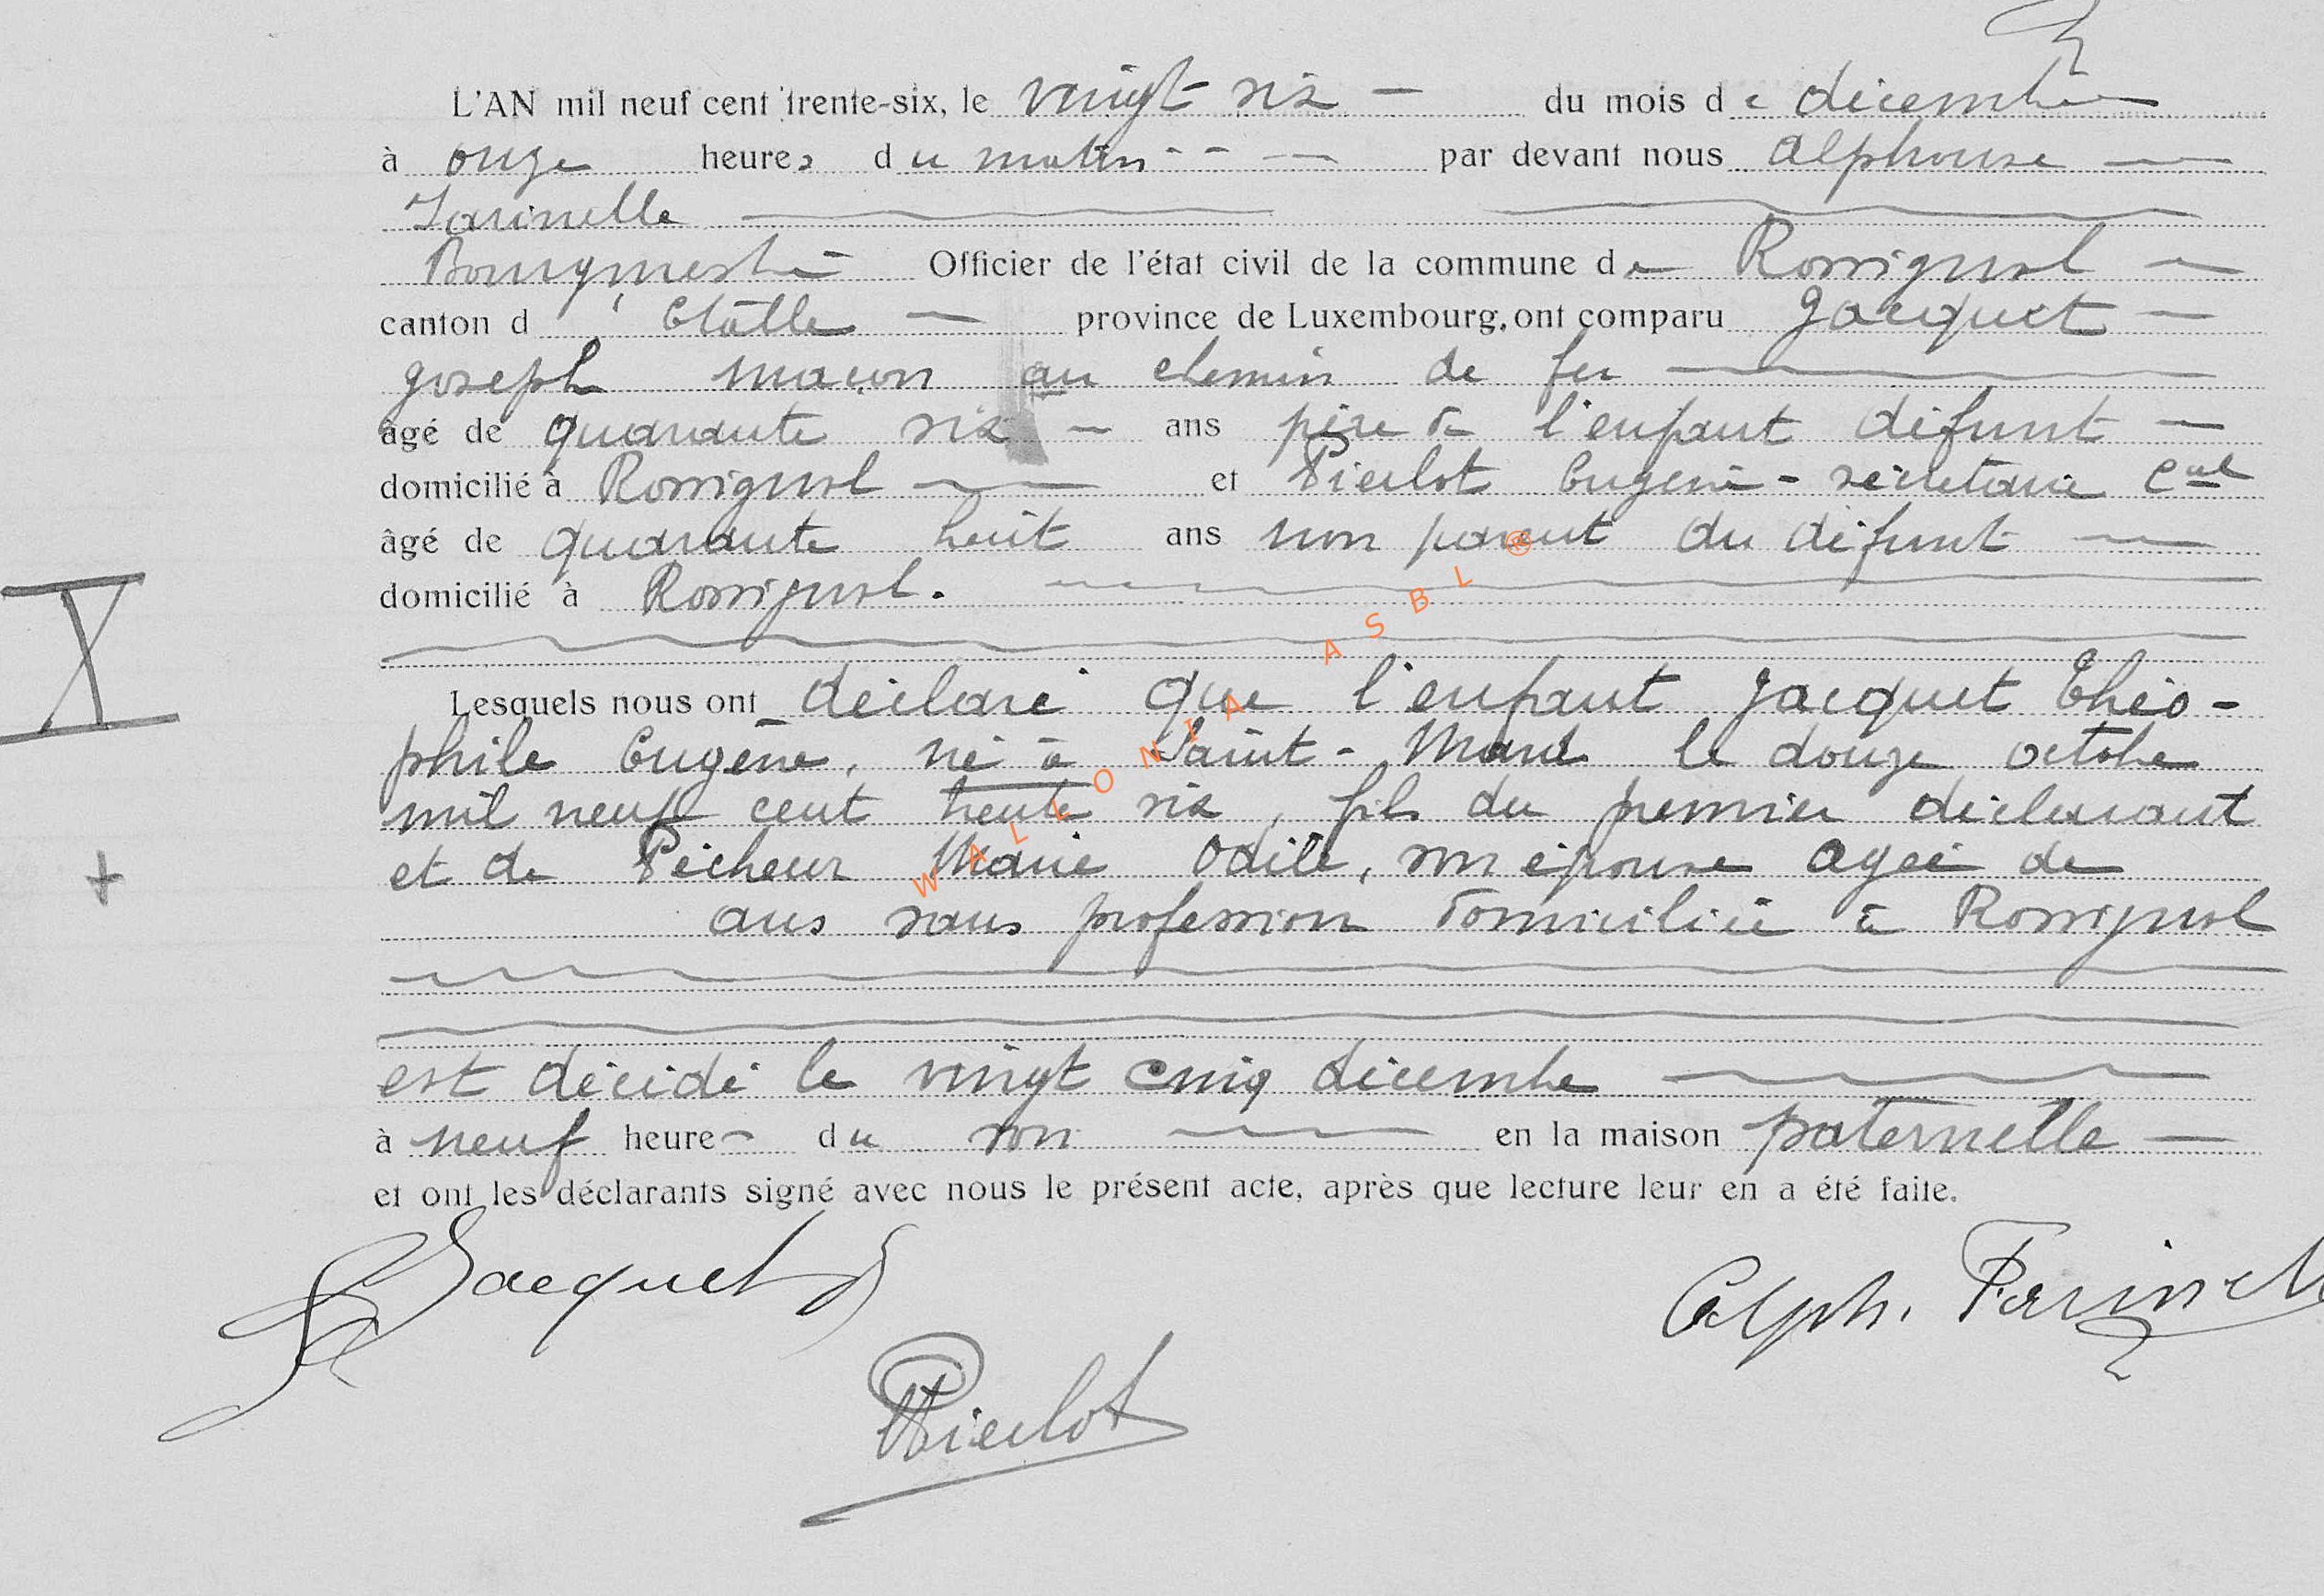 L'AN mil neuf cent trente-six, le vingt six du mois de décembre
à onze heures du matin par devant nous Alphonse
Farinelle
Bourgmestre Officier de l'état civil de la commune de Rossignol
canton d'Etalle province de Luxembourg, ont comparu Jacquet
Joseph maçon au chemin de fer
âgé de quarante six ans père de l'enfant défunt
domicilié à Rossignol et Pierlot Eugène - secrétaire Cal
âgé de quarante huit ans non parent du défunt
domicilié à Rossignol.
Lesquels nous ont déclaré que l'enfant Jacquet Théo-
phile Eugène, né à Saint-Mard le douze octobre
mil neuf cent trente six, fils du premier déclarant
et de Pêcheur Marie Odile, son épouse agée de
ans sans profession domiciliée à Rossignol
est décédé le vingt cinq décembre
à neuf heures du soir en la maison paternelle
et ont les déclarants signé avec nous le présent acte, après que lecture leur en a été faite.
Jacquet J
Alph. Farinelle
Pierlot
WALLONIA ASBL ®